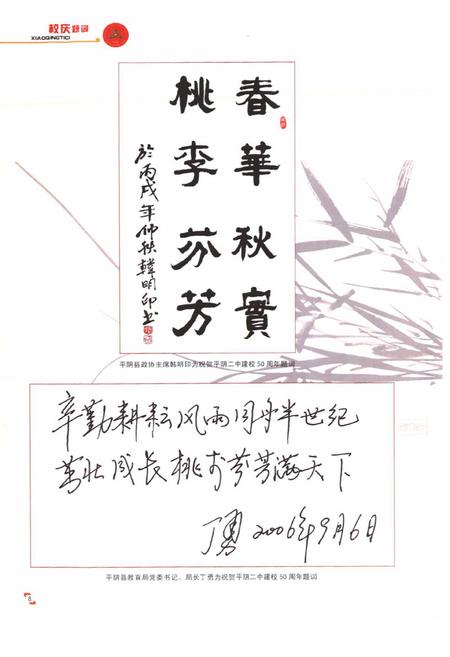 校庆题词
XIAOQINGTICI
春華秋實
桃李芬芳
於丙戌年仲秋韓明印书
平阴县政协主席韩明印为祝贺平阴二中建校50周年题词
辛勤耕耘风雨同舟半世纪
茁壮成长桃李芬芳满天下
丁勇2006年9月6日
平阴县教育局党委书记、局长丁勇为祝贺平阴二中建校50周年题词
8